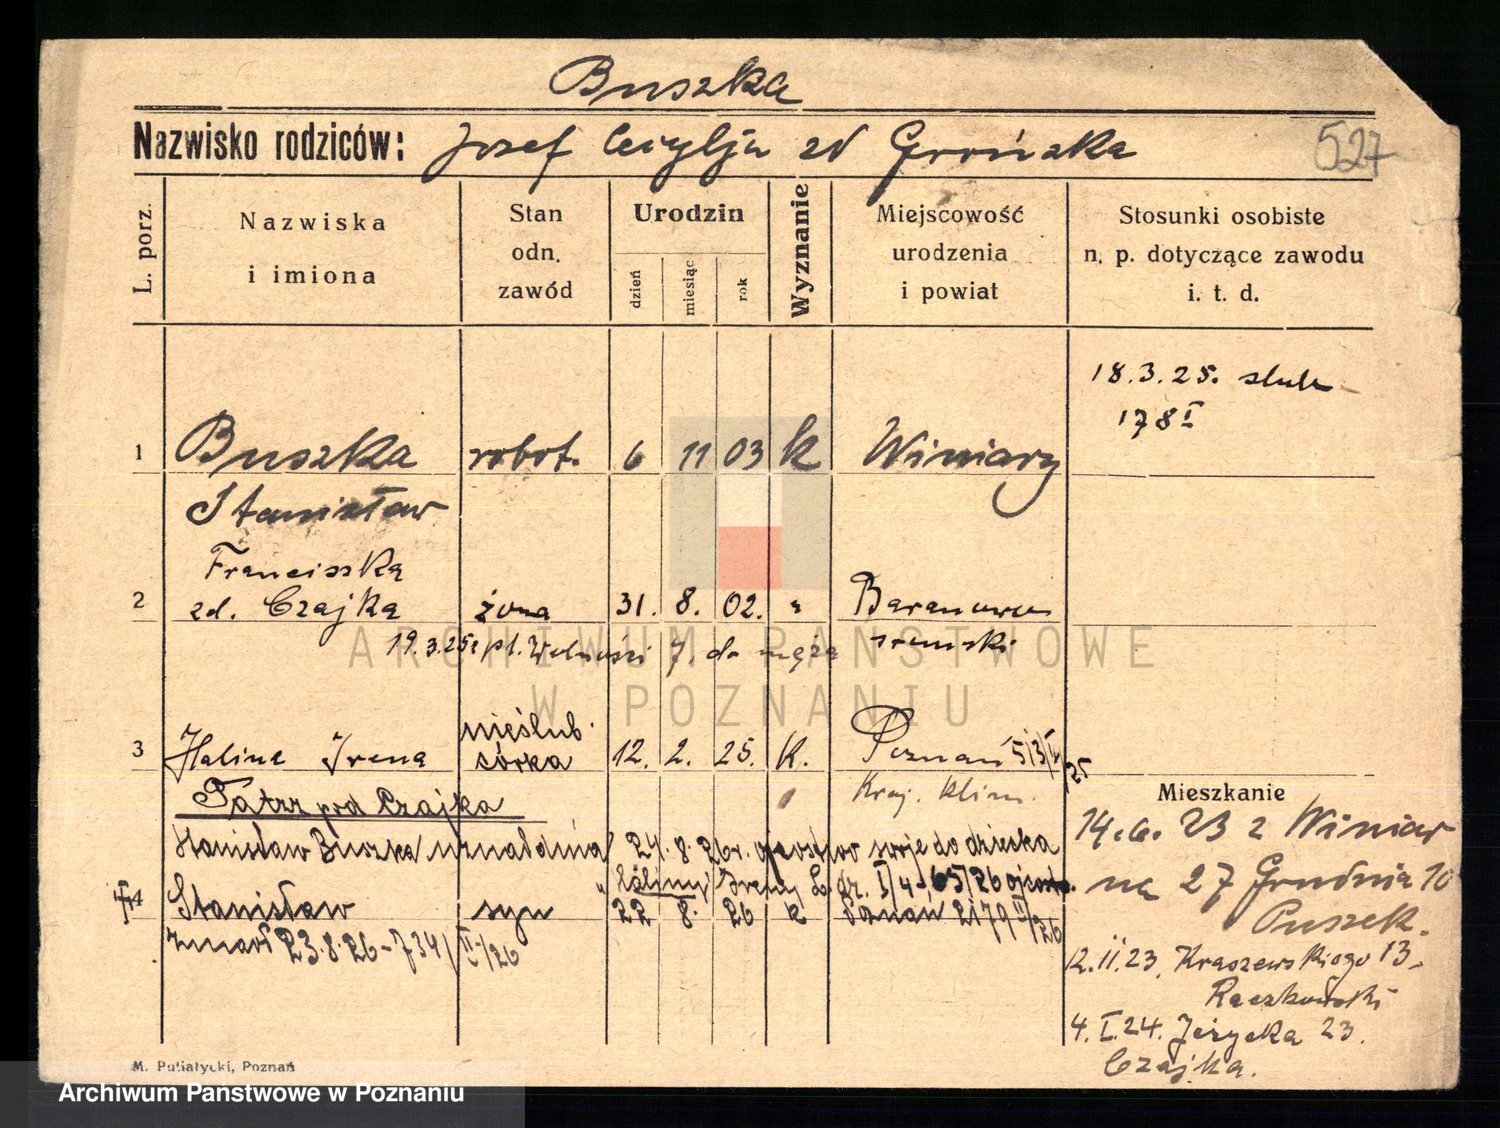 Buszka
Nazwisko rodziców: Josef Cecylja zd Grońska
527
L. porz.
Nazwiska i imiona
Stan odn. zawód
Urodzin
dzień miesiąc rok
Wyznanie
Miejscowość urodzenia i powiat
Stosunki osobiste n. p. dotyczące zawodu i. t. d.
18.3.25. slub
178 I
1 Buszka robot. 6 11 03 k Winiary
Stanisław
Franciszka
2 zd. Czajka żona 31. 8. 02. " Baranowo
19.3.25 pl. Wolności 7. do męża śremski
nieślub.
3 Halina Irena córka 12. 2. 25. K. Poznań 5/3/25
Kraj. klin.
Patrz pod Czajka
Stanisław Buszka uznał dnia 24.8.26r. ojcostwo swoje do dziecka
Haliny Ireny
4 Stanisław syn 22 8. 26 k Poznań 2179 II/26
zmarł 23.8.26 - 734/II/26
Mieszkanie
14.6.23 z Winiar
na 27 Grudnia 10
Puszek.
12.11.23, Kraszewskiego 13
Raczkowski
4.I.24. Jeżycka 23.
Czajka.
M. Putiatycki, Poznań
ARCHIWUM PAŃSTWOWE
W POZNANIU
Archiwum Państwowe w Poznaniu